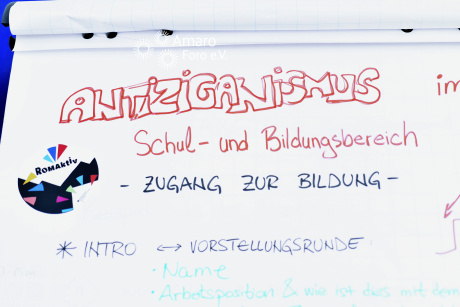 Amaro
Foro e.V.
ANTIZIGANISMUS
im
Schul- und Bildungsbereich
ROMAKTIV
- ZUGANG ZUR BILDUNG -
* INTRO ↔ VORSTELLUNGSRUNDE
• Name
• Arbeitsposition & wie ist dies mit dem